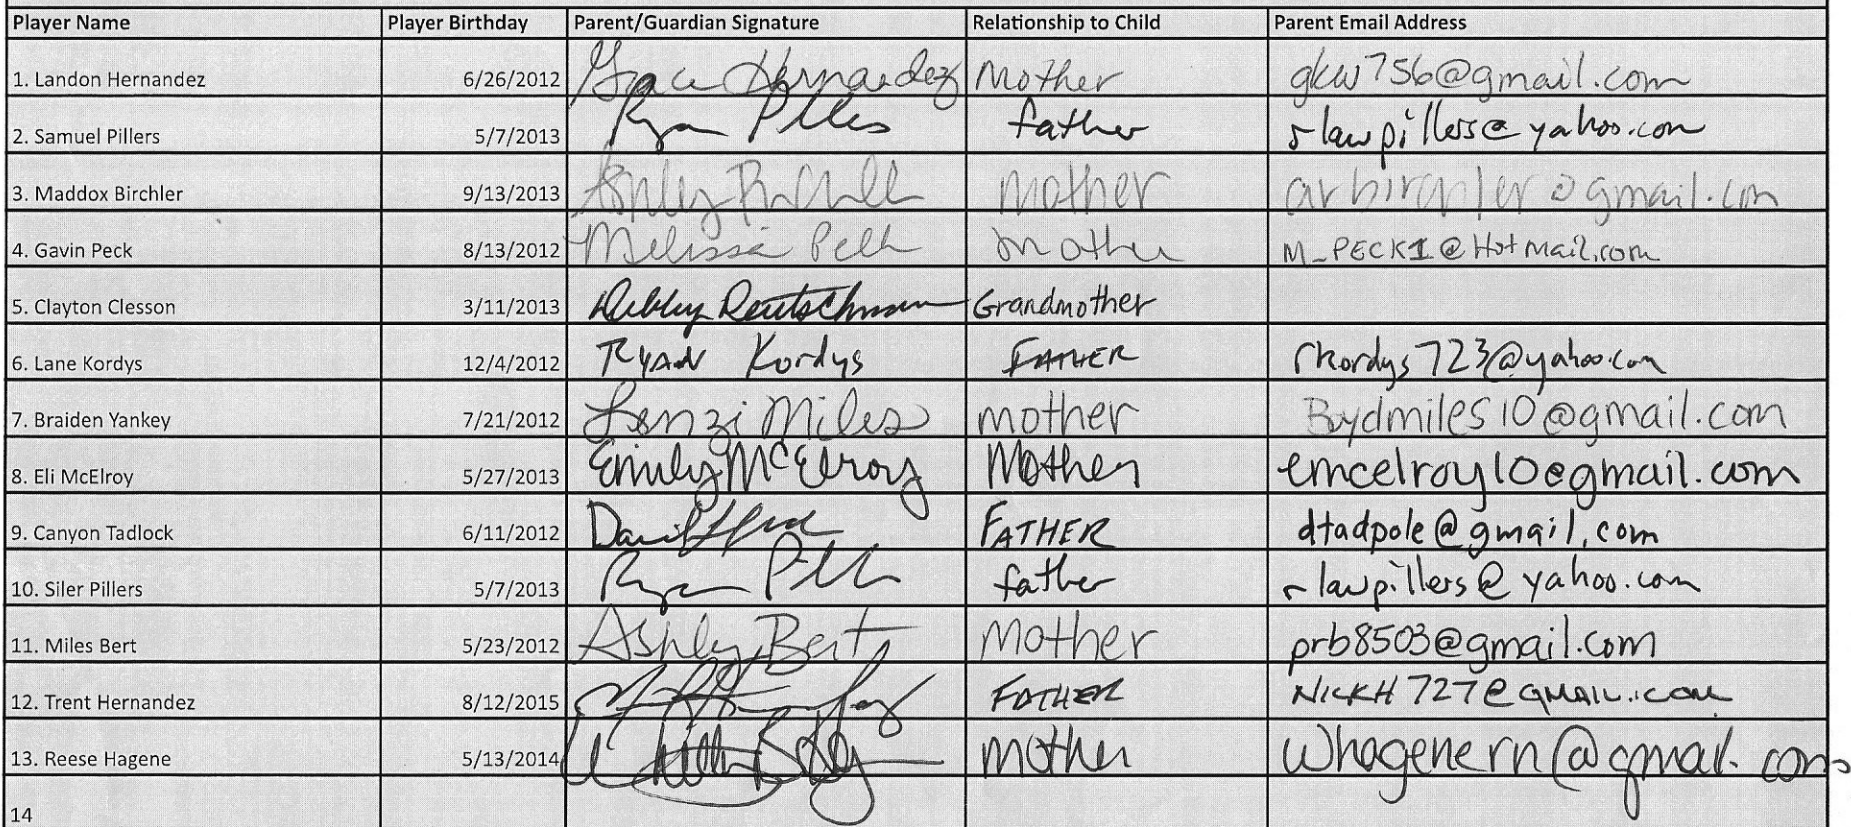 Player Name Player Birthday Parent/Guardian Signature Relationship to Child Parent Email Address
1. Landon Hernandez 6/26/2012 Grace Hernandez Mother gkw756@gmail.com
2. Samuel Pillers 5/7/2013 Ryan father rlawpillers@yahoo.com
3. Maddox Birchler 9/13/2013 Ashley mother arbirchler@gmail.com
4. Gavin Peck 8/13/2012 Melissa Peck mother M_PECK1@Hotmail.com
5. Clayton Clesson 3/11/2013 Debby Deutschman Grandmother
6. Lane Kordys 12/4/2012 RYAN Kordys FATHER rkordys723@yahoo.com
7. Braiden Yankey 7/21/2012 Lenzi Miles mother Boydmiles10@gmail.com
8. Eli McElroy 5/27/2013 Emily McElroy Mother emcelroy10@gmail.com
9. Canyon Tadlock 6/11/2012 FATHER dtadpole@gmail.com
10. Siler Pillers 5/7/2013 Ryan father rlawpillers@yahoo.com
11. Miles Bert 5/23/2012 Ashley Bert Mother prb8503@gmail.com
12. Trent Hernandez 8/12/2015 FATHER NICKH727@GMAIL.COM
13. Reese Hagene 5/13/2014 mother whagenern@gmail.com
14